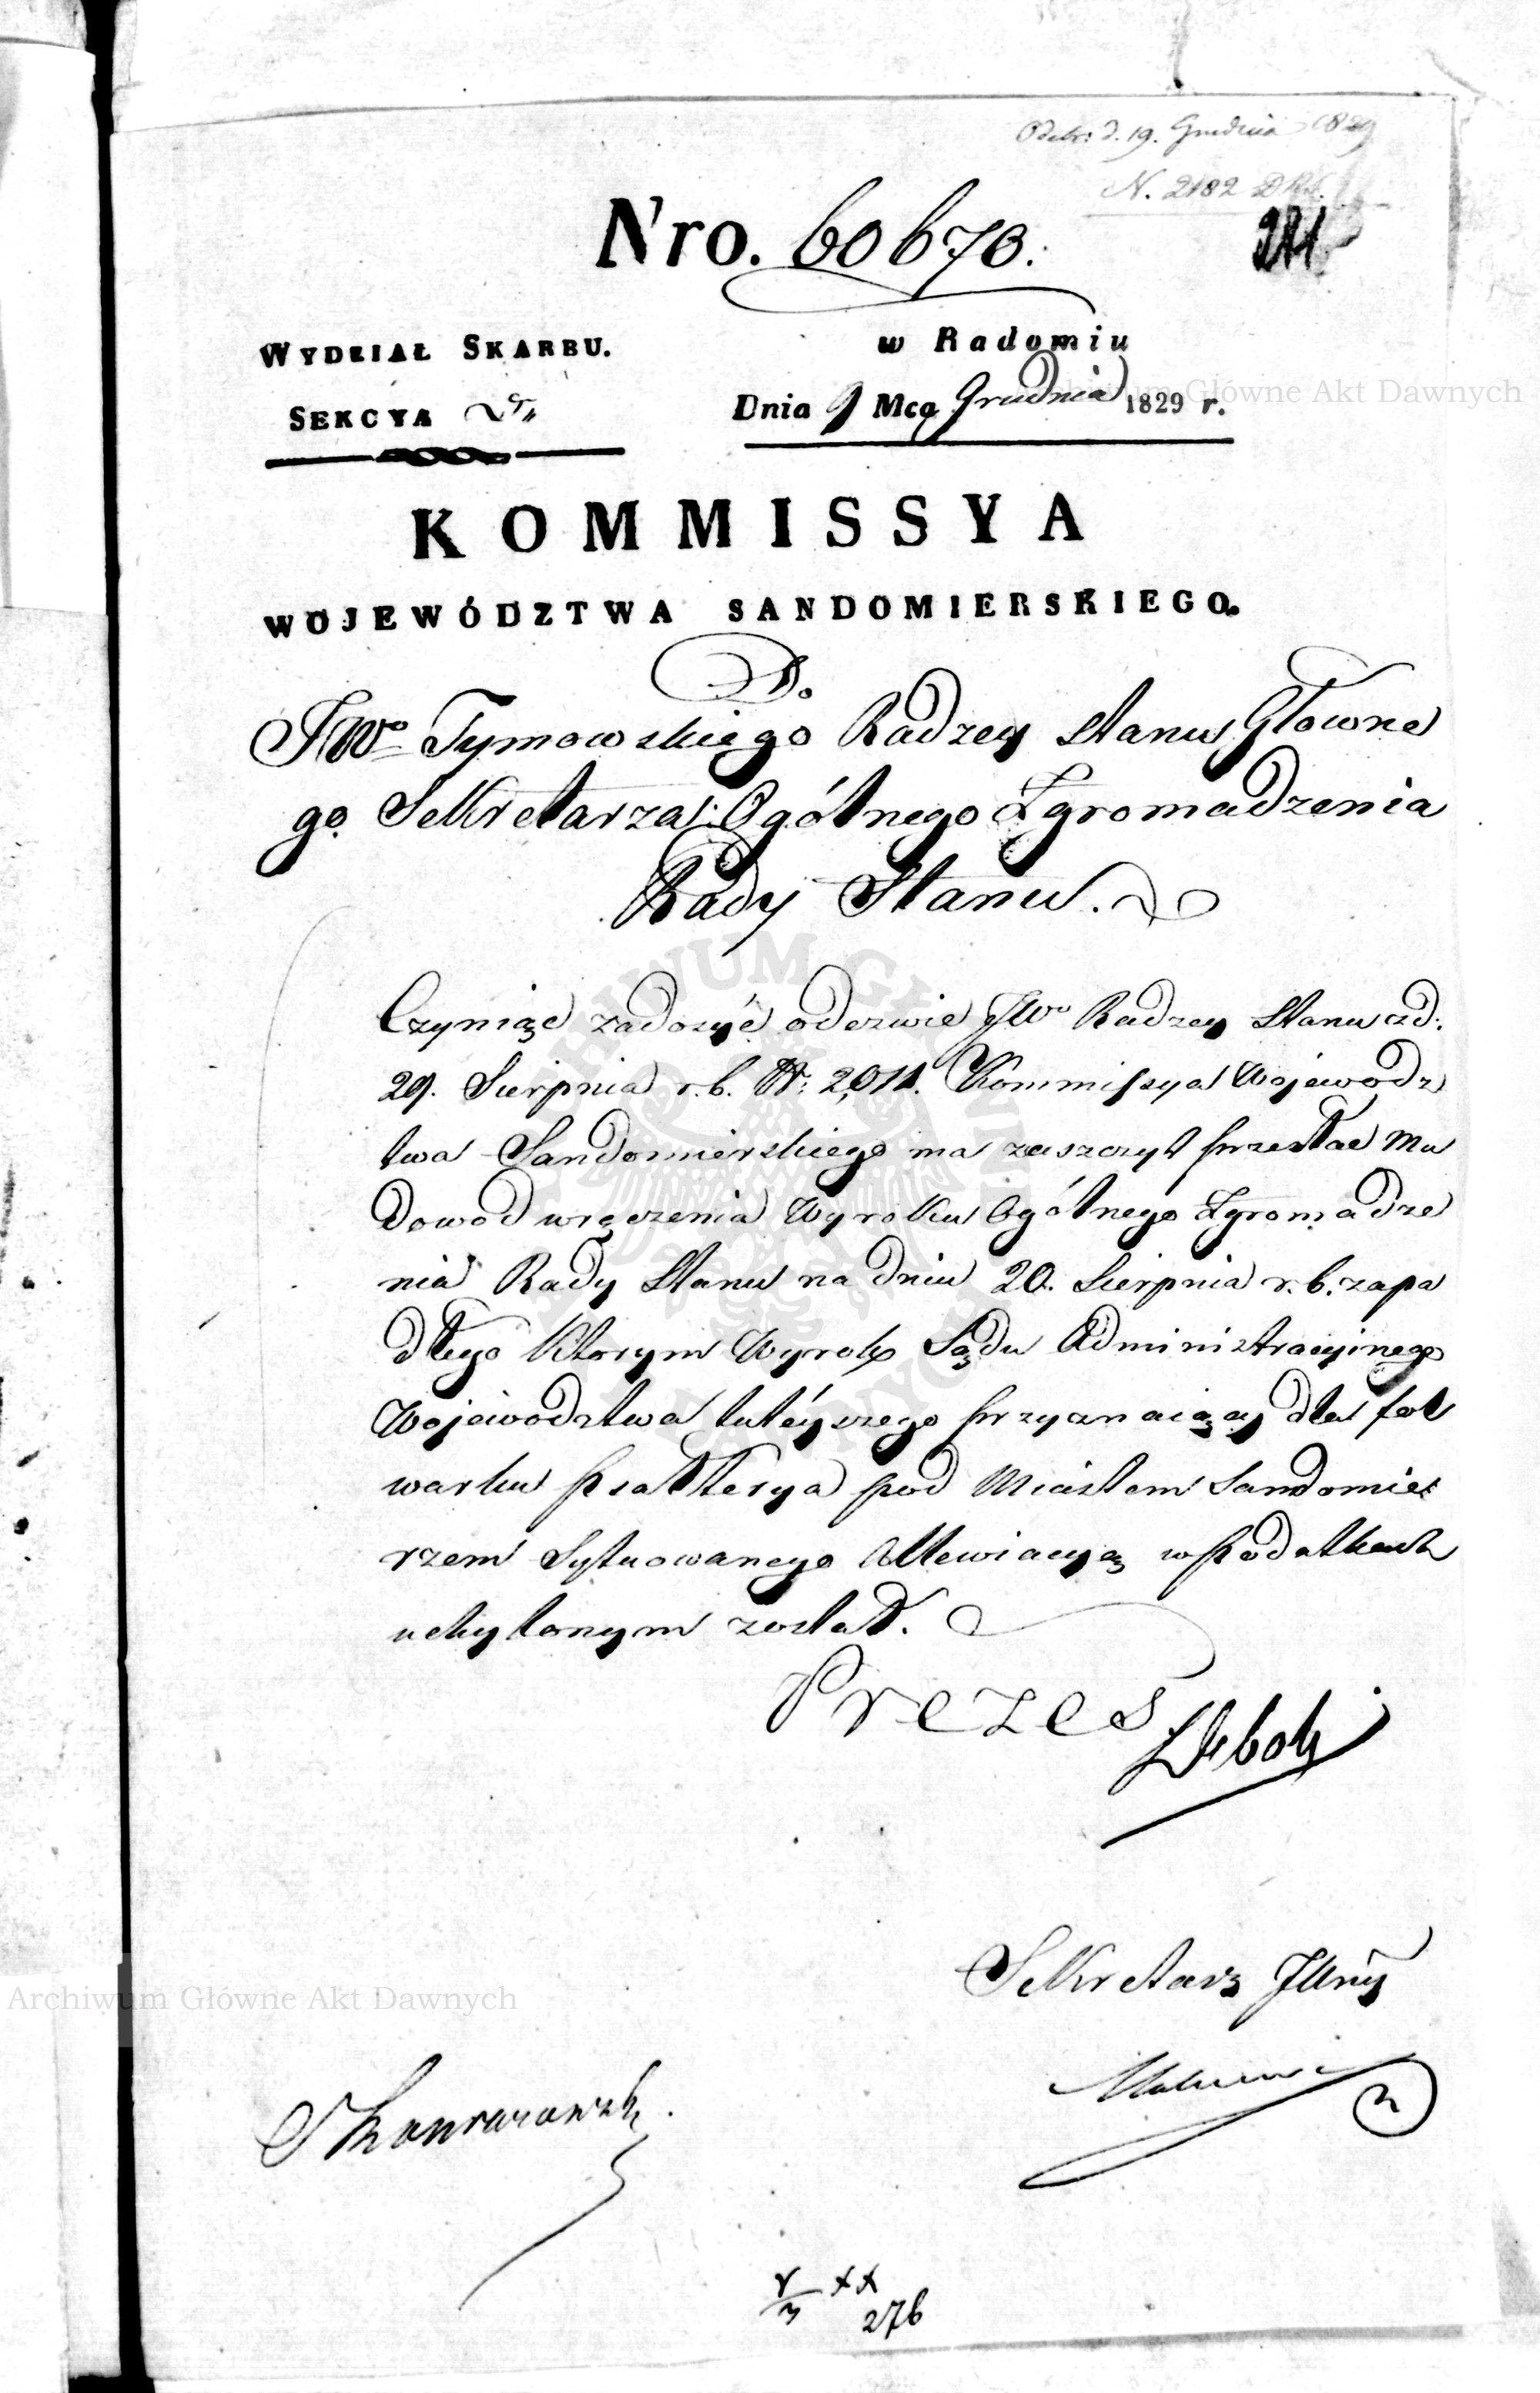 Odebr: d. 19. Grudnia 1829
N. 2182
Nro. 60670.
WYDZIAŁ SKARBU.
w Radomiu
SEKCYA
Dnia 9 Mca Grudnia 1829 r.
KOMMISSYA
WOJEWÓDZTWA SANDOMIERSKIEGO.
Do
JWo Tymowskiego Radzcy Stanu Głowne
go Sekretarza Ogólnego Zgromadzenia
Rady Stanu.
Czyniąc zadosyć odezwie JWo Radzcy Stanu zd:
29. Sierpnia r.b. N: 2,011. Kommissya Wojewodz
twa Sandomierskiego ma zaszczyt przesłać Mu
dowod wręczenia Wyroku Ogólnego Zgromadze
nia Rady Stanu na dniu 20. Sierpnia r.b. zapa
dłego ktorym Wyrok Sądu Administracyjnego
Wojewodztwa tutéyszego przyznaiący dla fol
warku Psałterya pod Miastem Sandomie
rzem Sytuowanego Allewiacyą w Podatkach
uchylonym został.
Prezes
Deboli
Sekretarz Jlny
276
Archiwum Główne Akt Dawnych
Archiwum Główne Akt Dawnych